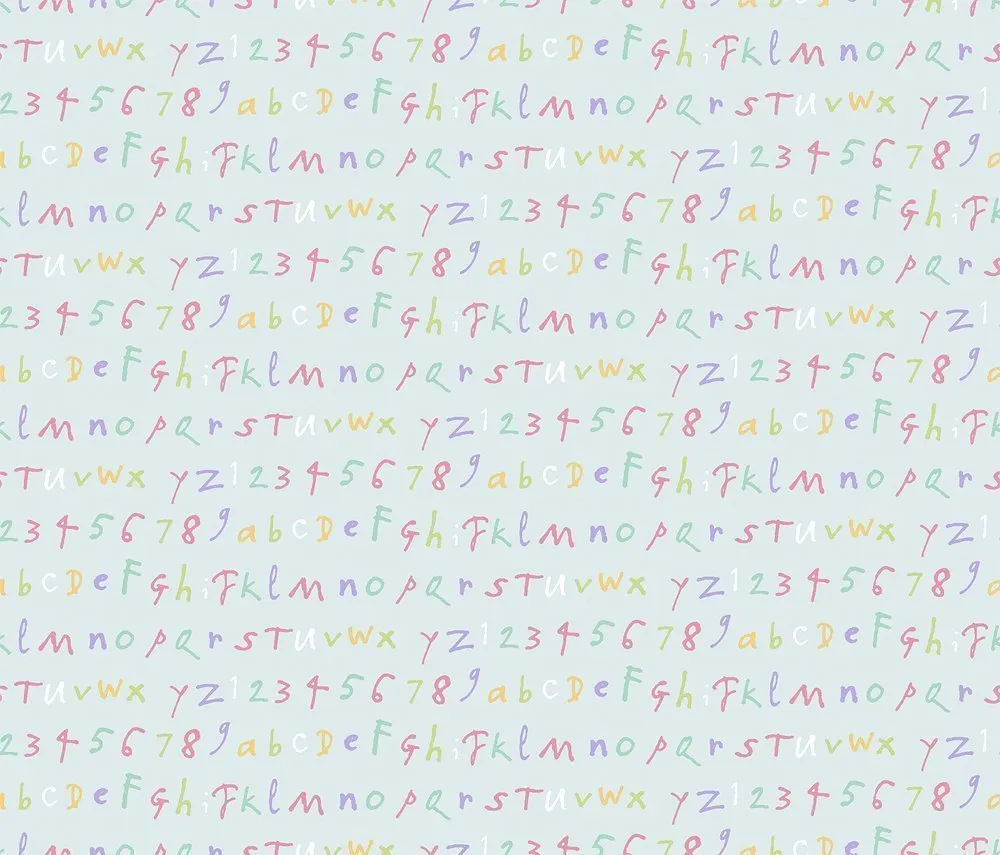 s T u v w x y z 1 2 3 4 5 6 7 8 9 a b c D e F G h i J k l M n o p Q r s
2 3 4 5 6 7 8 9 a b c D e F G h i J k l M n o p Q r s T u v w x y z 1
a b c D e F G h i J k l M n o p Q r s T u v w x y z 1 2 3 4 5 6 7 8 9 a
k l M n o p Q r s T u v w x y z 1 2 3 4 5 6 7 8 9 a b c D e F G h i J k
s T u v w x y z 1 2 3 4 5 6 7 8 9 a b c D e F G h i J k l M n o p Q r s
2 3 4 5 6 7 8 9 a b c D e F G h i J k l M n o p Q r s T u v w x y z 1
a b c D e F G h i J k l M n o p Q r s T u v w x y z 1 2 3 4 5 6 7 8 9 a
k l M n o p Q r s T u v w x y z 1 2 3 4 5 6 7 8 9 a b c D e F G h i J k
s T u v w x y z 1 2 3 4 5 6 7 8 9 a b c D e F G h i J k l M n o p Q r s
2 3 4 5 6 7 8 9 a b c D e F G h i J k l M n o p Q r s T u v w x y z 1
a b c D e F G h i J k l M n o p Q r s T u v w x y z 1 2 3 4 5 6 7 8 9 a
k l M n o p Q r s T u v w x y z 1 2 3 4 5 6 7 8 9 a b c D e F G h i J k
s T u v w x y z 1 2 3 4 5 6 7 8 9 a b c D e F G h i J k l M n o p Q r s
2 3 4 5 6 7 8 9 a b c D e F G h i J k l M n o p Q r s T u v w x y z 1
a b c D e F G h i J k l M n o p Q r s T u v w x y z 1 2 3 4 5 6 7 8 9 a